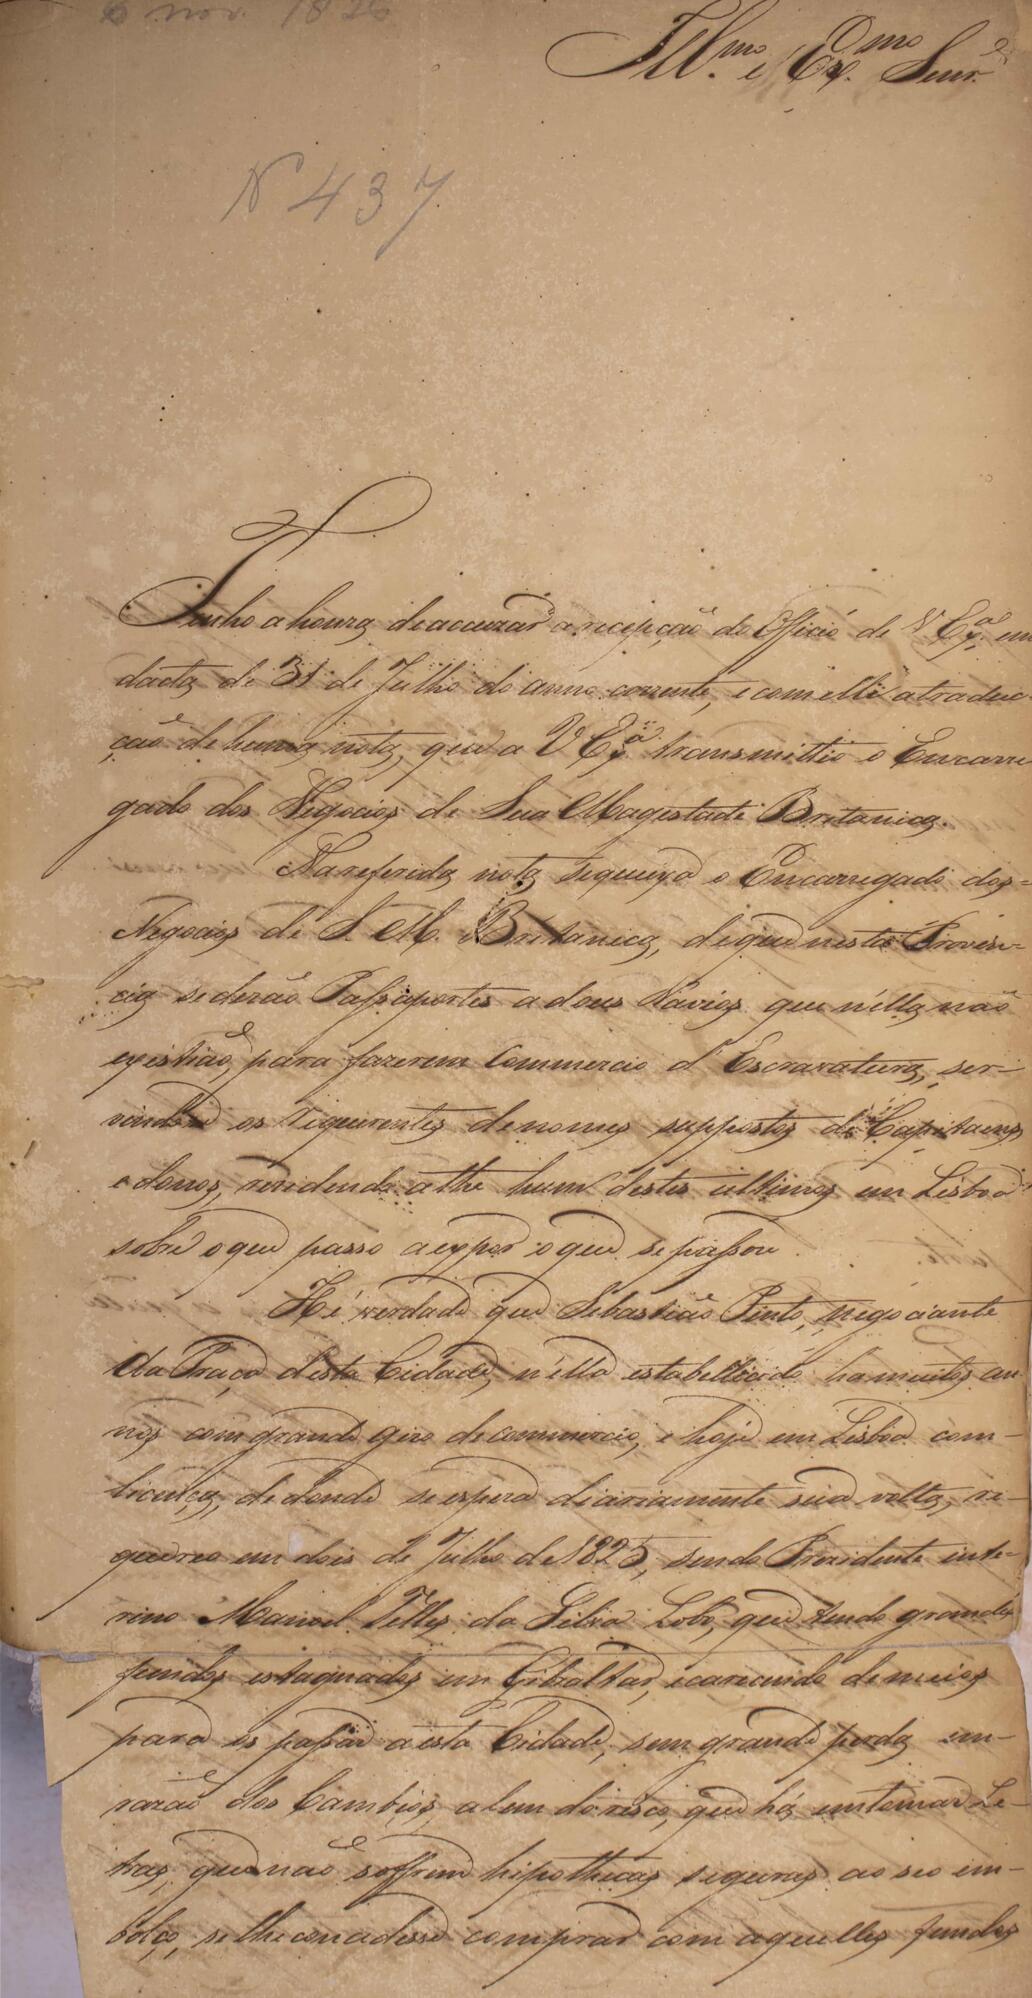 6 nov. 1826
Ill.mo e Ex.mo Senr.
N 437
Tenho a honra de accuzar a recepção do Officio de V Ex.a em
dacta de 31 de Julho do anno corrente, e com elle a traduc-
ção de huma nota, que a V Ex.a transmittio o Encarre
gado dos Negocios de Sua Magestade Britanica.
Na referida nota se queixa o Encarregado dos
Negocios de S. M. Britanica, de que nesta Provin-
cia se derão Passaportes a dous Navios que n'ella não
existião, para fazerem Commercio d'Escravatura, ser-
vindose os requerentes de nomes suppostos de Capitaens
e donos, rezidindo athe hum destes ultimos em Lisboa
sobre o que passo a expor o que se passou.
Hé verdade que Sebastião Pinto, negociante
da Praça desta Cidade, n'ella estabellecido ha muitos an
nos com grande giro de commercio, e hoje em Lisboa com
licença, de donde se espera diariamente sua volta, re-
quereo em dois de Julho de 1825, sendo Prezidente inte-
rino Manoel Telles da Silva Lobo, que tendo grandes
fundos estagnados em Gibraltar, e carecendo de meios
para os passar a esta Cidade, sem grande perda em
razão dos Cambios, alem do risco, que há em tomar Le-
tras, que não soffrem hipothecas seguras ao seo em-
bolço, se lhe concedesse comprar com aquelles fundos